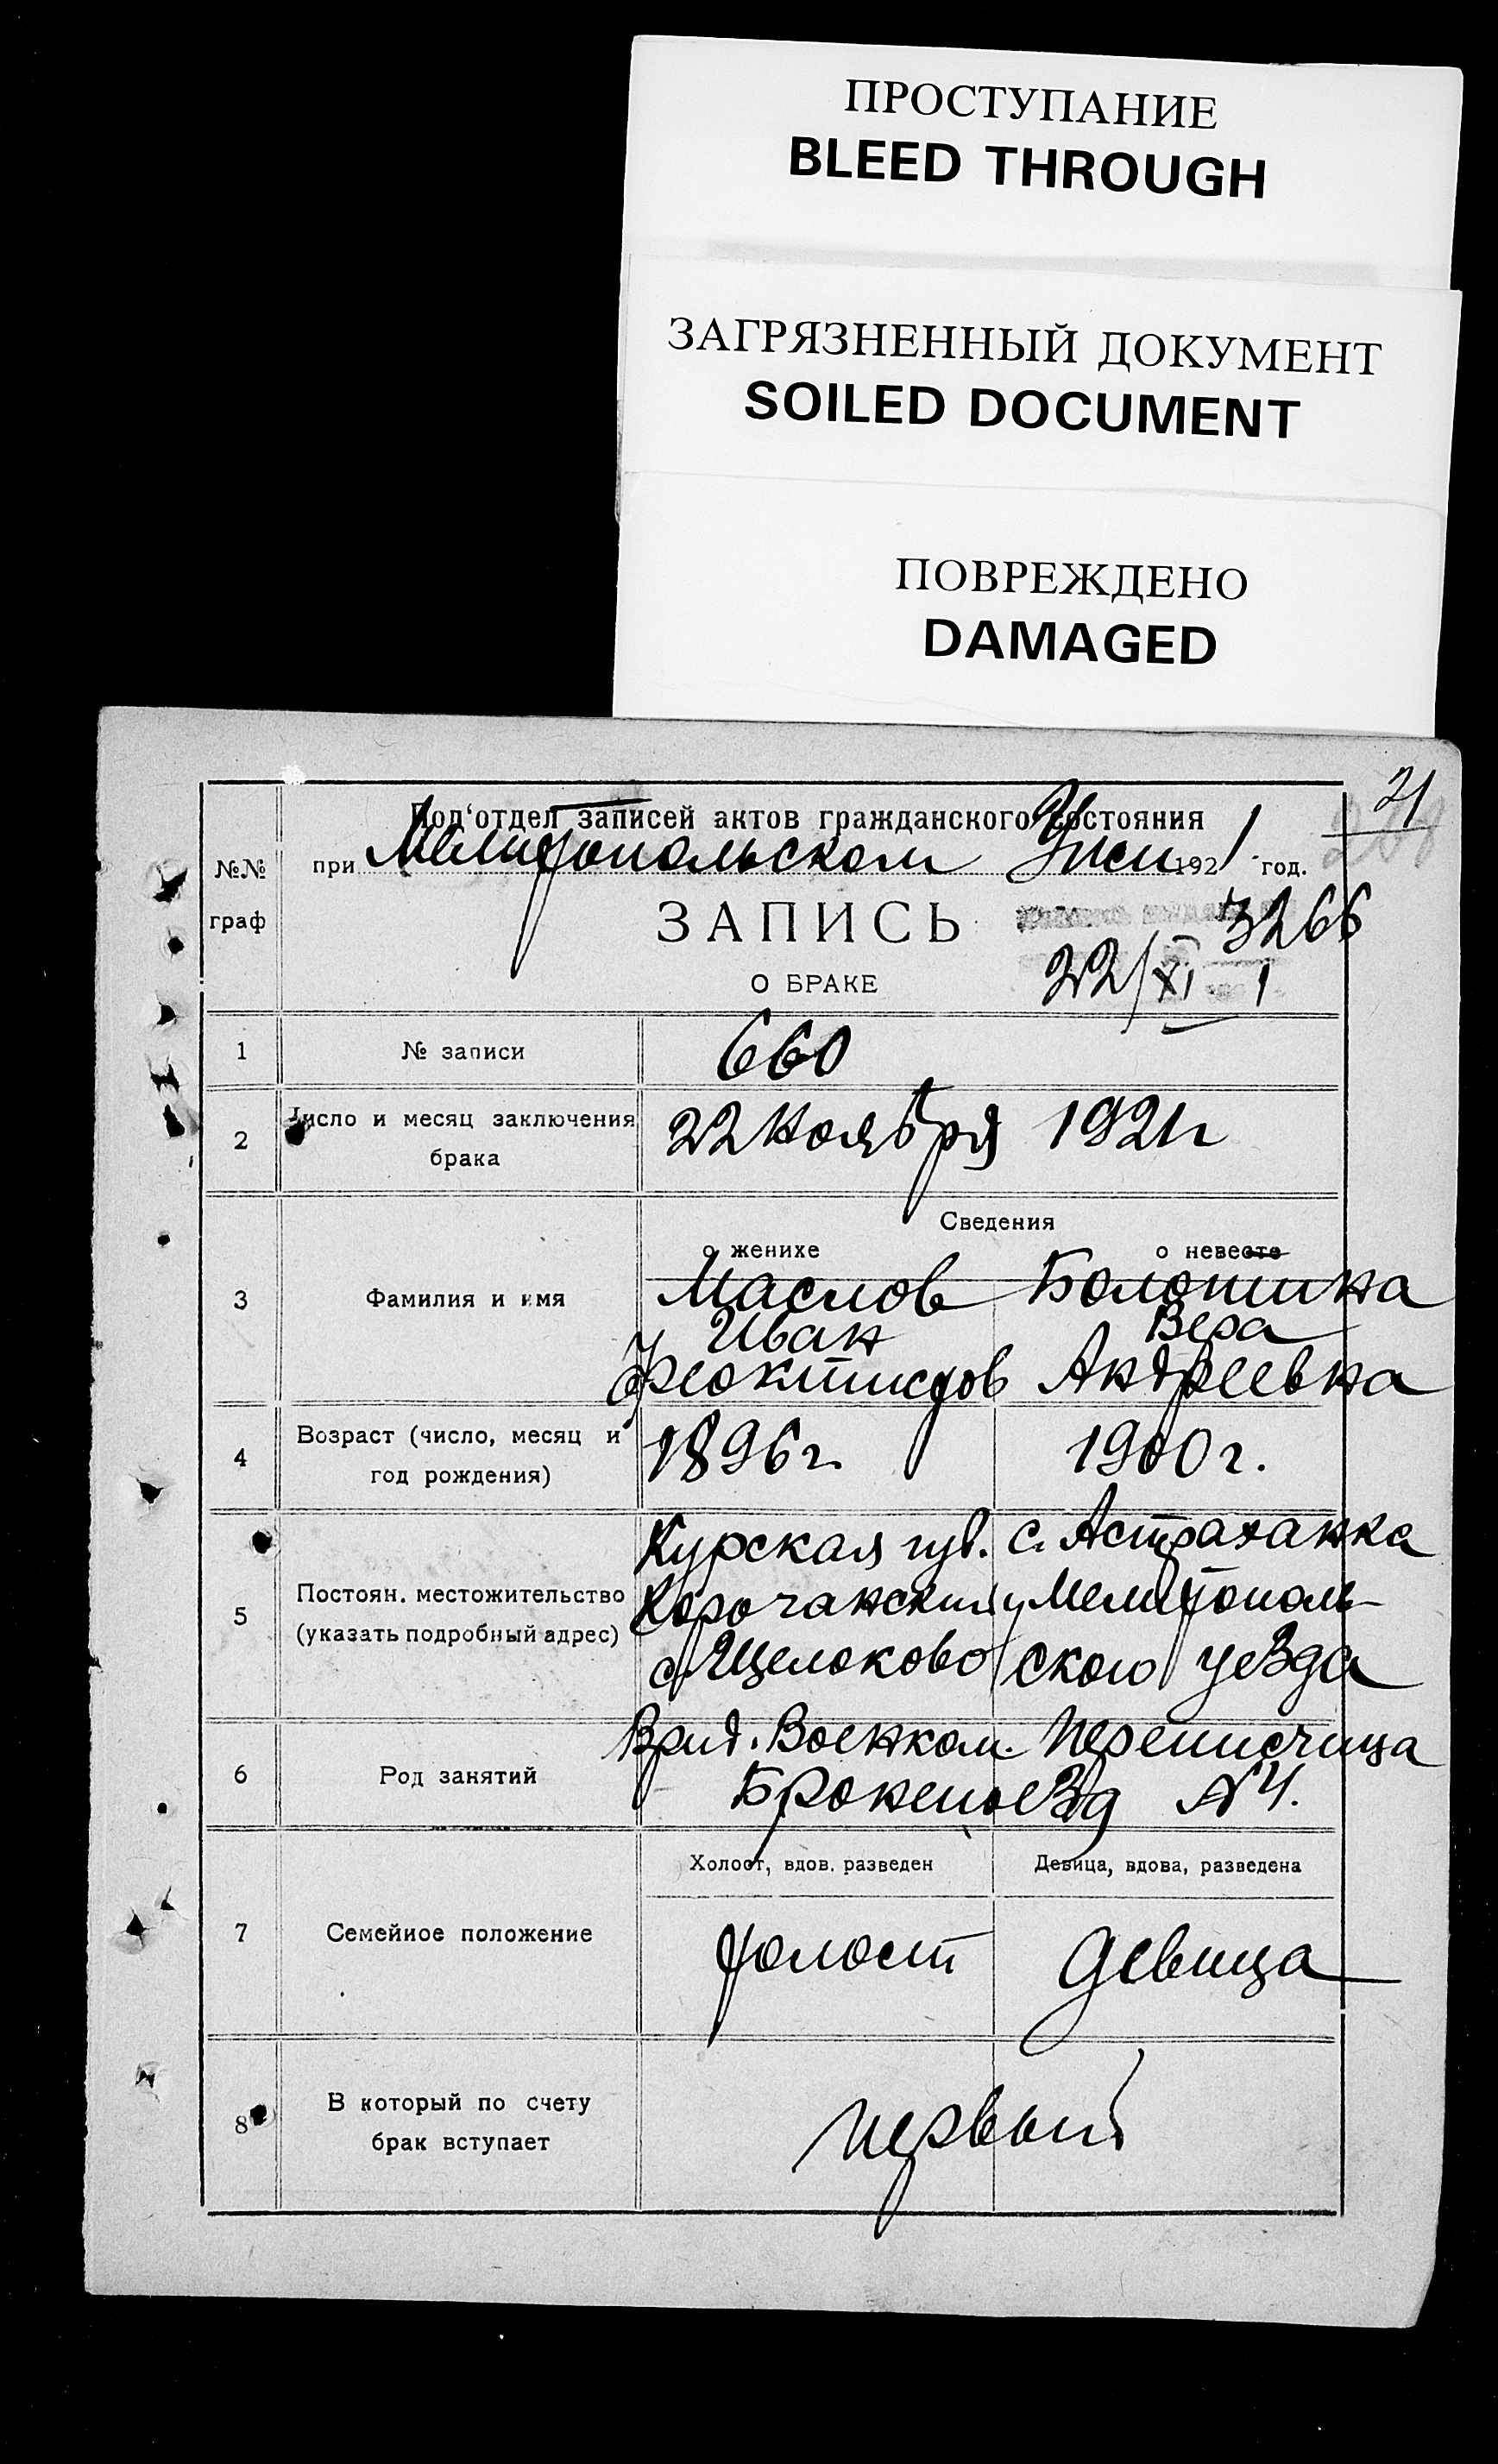 ПРОСТУПАНИЕ
BLEED THROUGH
ЗАГРЯЗНЕННЫЙ ДОКУМЕНТ
SOILED DOCUMENT
ПОВРЕЖДЕНО
DAMAGED
21
Под'отдел записей актов гражданского состояния
№№ граф
при Мелитопольском 1921 год.
ЗАПИСЬ
3266
О БРАКЕ
22/XI 1
1 № записи 660
2 Число и месяц заключения брака 22 Ноября 1921 г
Сведения
о женихе о невесте
3 Фамилия и имя
Маслов Болотина
Иван Вера
Феоктистов Андреевна
4 Возраст (число, месяц и год рождения) 1896 г. 1900 г.
5 Постоян. местожительство (указать подробный адрес)
Курская губ. с. Астраханка
Корочанский у Мелитополь-
с. Щелоково ского уезда
6 Род занятий
Врид. Военком. Переписчица
Бронепоезд № 4.
Холост, вдов. разведен Девица, вдова, разведена
7 Семейное положение холост девица
8 В который по счету брак вступает первый